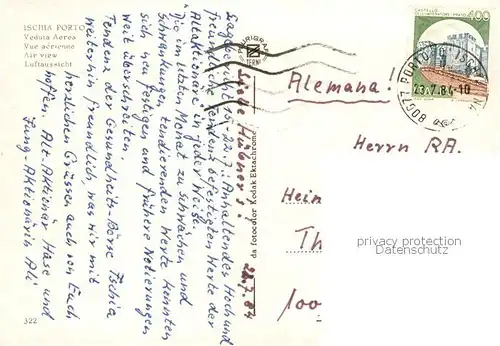 ISCHIA PORTO
Veduta Aerea
Vue aérienne
Air view
Luftaussicht
322
da fotocolor Kodak Ektachrome
Liebe Hübners!
22.7.84
15.-22.7.: Anhaltendes Hoch und
freundliche Tendenz befestigten Werte der
Altaktionäre in jeder Weise.
Die im letzten Monat zu schwachen und
Schwankungen tendierenden Werte konnten
sich neu festigen und frühere Notierungen
weit überschreiten.
Tendenz der Gesundheits-Börse Ischia
weiterhin freundlich, was wir mit
herzlichen Grüssen auch von Euch
hoffen. Alt-Aktionär Hase und
Jung-Aktionärin Ali
CASTELLO
400
80077 PORTO D'ISCHIA NA
23.7.84-10
Alemana!
Herrn RA.
Hein
Th
100
privacy protection
Datenschutz